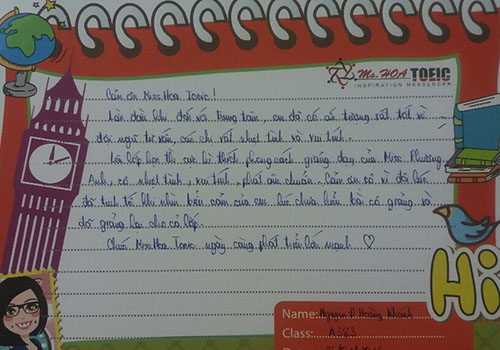 Ms.HOA TOEIC
INSPIRATION MESSENGER
Cảm ơn Miss Hoa Toeic!
Lần đầu khi đến với Trung tâm, em đã có ấn tượng rất tốt về
đội ngũ tư vấn, các chị rất nhiệt tình và vui tính.
Lớp học thì cực kì thích phong cách giảng dạy của Miss Phương
Anh, cô nhiệt tình, vui tính, phát âm chuẩn. Cảm ơn cô vì đôi lần
đã tinh tế khi nhìn biểu cảm của em lúc chưa hiểu bài cô giảng và
đã giảng lại cho cả lớp.
Chúc Miss Hoa Toeic ngày càng phát triển lớn mạnh ♡
Hi
Name: Nguyễn P. Hoàng
Class: A383